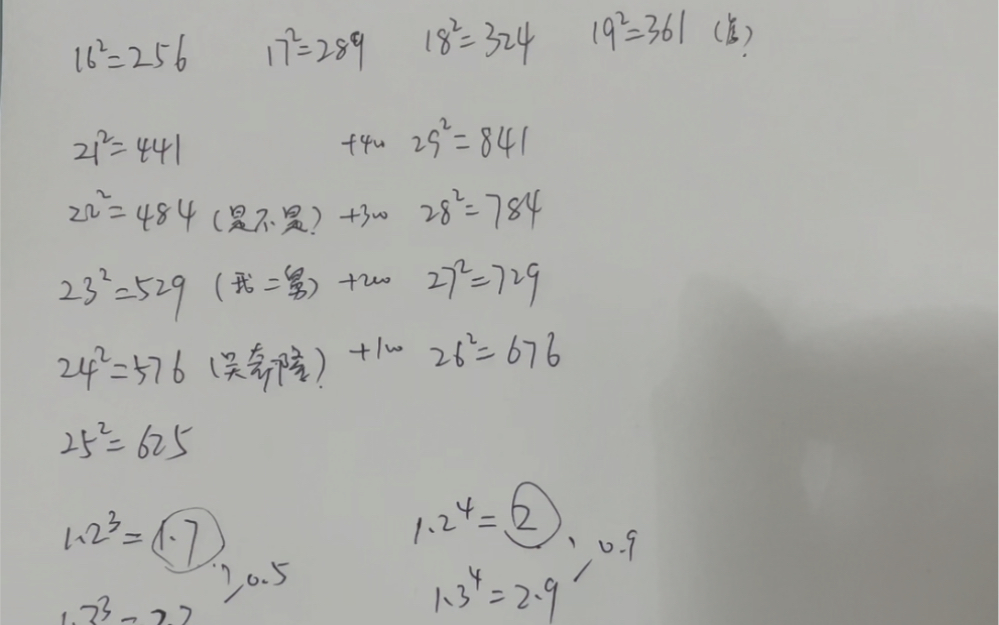 16²=256 17²=289 18²=324 19²=361
21²=441 +400 29²=841
22²=484 (是不是?) +300 28²=784
23²=529 (我二舅) +200 27²=729
24²=576 (吴奇隆) +100 26²=676
25²=625
1.2³=1.7 1.2⁴=2
0.5 0.9
1.3³=2.2 1.3⁴=2.9